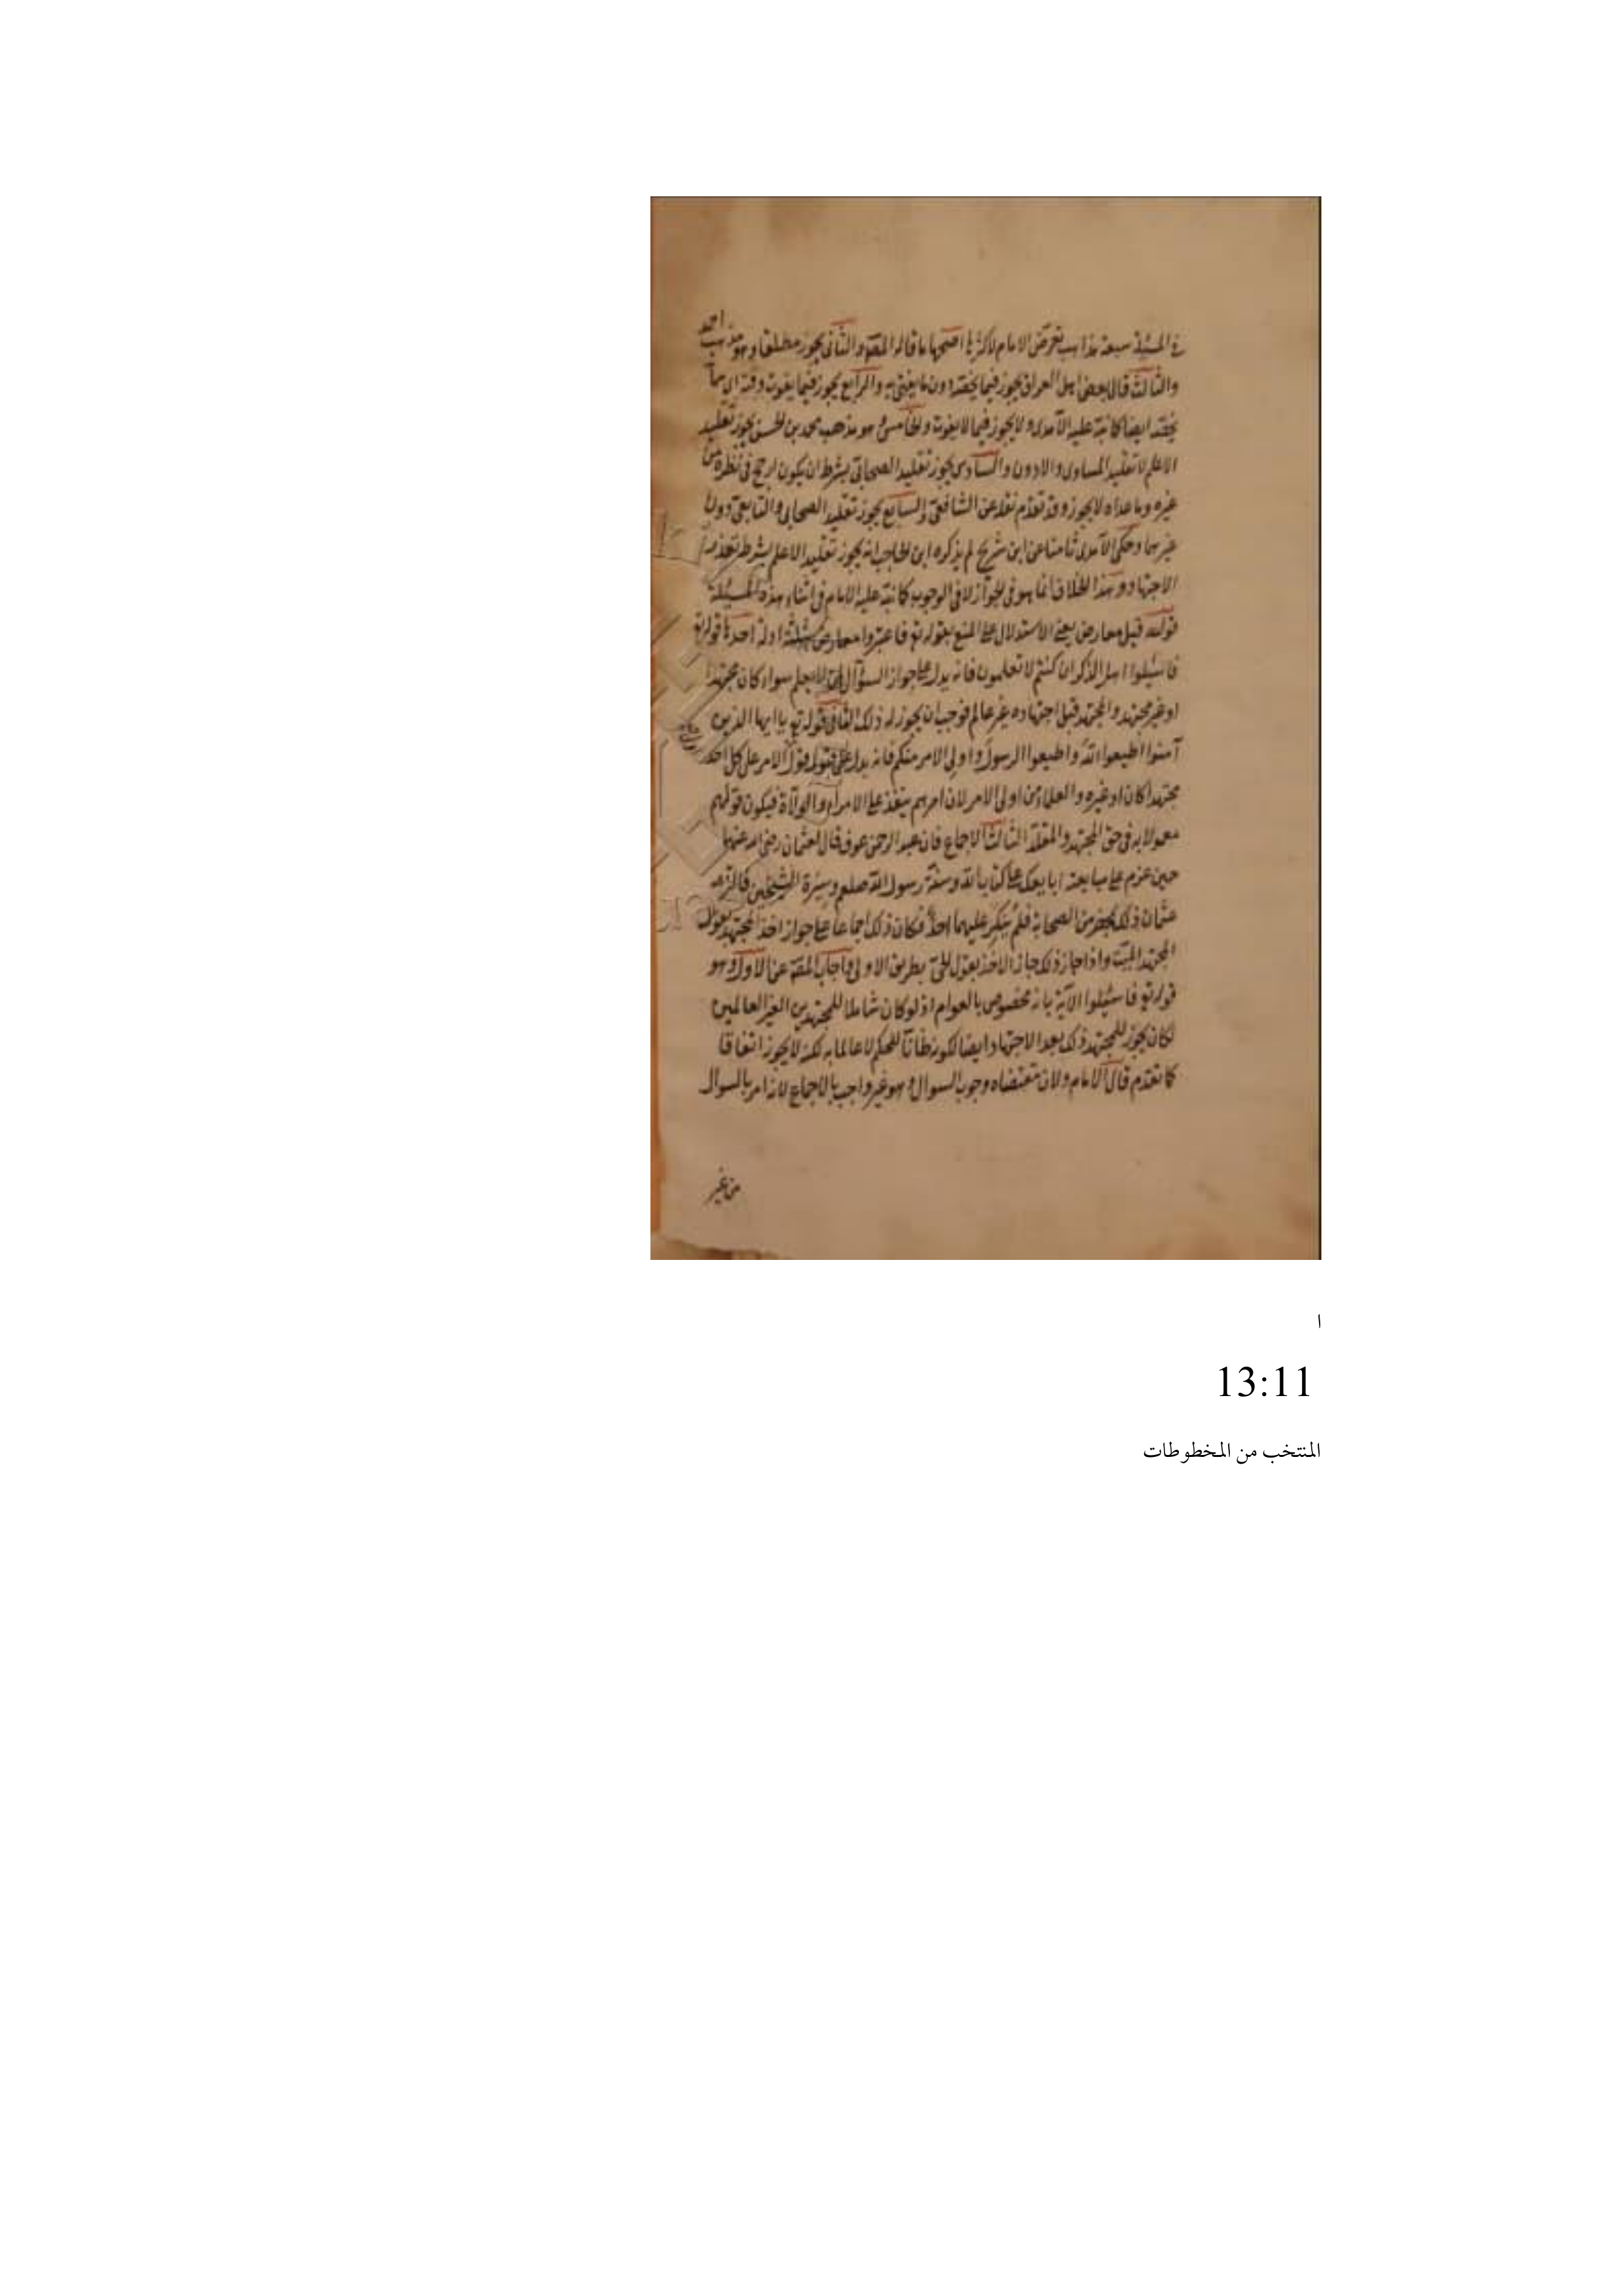 في المسئلة سبعة مذاهب تعرض الامام لاكثرها اصحها ما قاله المص والثاني يجوز مطلقا وهو مذهب احمد
والثالث قال بعض اهل العراق يجوز فيما يخصه دون ما يفتى به والرابع يجوز فيما يفوت وقته اى مما
يخصه ايضا كما نبه عليه الآمدى ولا يجوز فيما لا يفوت والخامس وهو مذهب محمد بن الحسن يجوز تقليد
الاعلم لا تقليد المساوى والادون والسادس يجوز تقليد الصحابى بشرط ان يكون ارجح فى نظره من
غيره وما عداه لا يجوز وقد تقدم نقله عن الشافعى والسابع يجوز تقليد الصحابى والتابعى دون
غيرهما وحكى الآمدى ثامنا عن ابن شريح لم يذكره ابن الحاجب انه يجوز تقليد الاعلم بشرط تعذر
الاجتهاد وهذا الخلاف انما هو فى الجواز لا فى الوجوب كما نبه عليه الامام فى اثناء هذه المسئلة
قوله قيل معارض يعنى الاستدلال على المنع بقوله تع فاعتبروا معارض بثلثة ادلة احدها قوله تع
فاسئلوا اهل الذكر ان كنتم لا تعلمون فانه يدل على جواز السؤال لمن لا يعلم سواء كان مجتهدا
او غير مجتهد والمجتهد قبل اجتهاده غير عالم فوجب ان يجوز له ذلك الثانى قوله تع يا ايها الذين
آمنوا اطيعوا الله واطيعوا الرسول واولى الامر منكم فانه يدل على قبول قول اولى الامر على كل احد
مجتهدا كان او غيره والعلماء من اولى الامر لان امرهم ينفذ على الامراء والولاة فيكون قولهم
معمولا به فى حق المجتهد والمقلد الثالث الاجماع فان عبد الرحمن عوف قال لعثمان رضى الله عنهما
حين عزم على مبايعته ابايعك على كتاب الله وسنة رسول الله صلعم وسيرة الشيخين فالتزمه
عثمان ذلك بمحضر من الصحابة فلم ينكر عليهما احد فكان ذلك اجماعا على جواز اخذ المجتهد بقول
المجتهد الميت واذا جاز ذلك جاز الاخذ بقول الحى بطريق الاولى واجاب المص عن الاول وهو
قوله تع فاسئلوا الآية بانه مخصوص بالعوام اذ لو كان شاملا للمجتهدين الغير العالمين
لكان يجوز للمجتهد ذلك بعد الاجتهاد ايضا لكونه ظانا للحكم لا عالما به لكنه لا يجوز اتفاقا
كما تقدم قال الامام ولان مقتضاه وجوب السوال وهو غير واجب بالاجماع لانه امر بالسوال
من غير
ا
13:11
المنتخب من المخطوطات